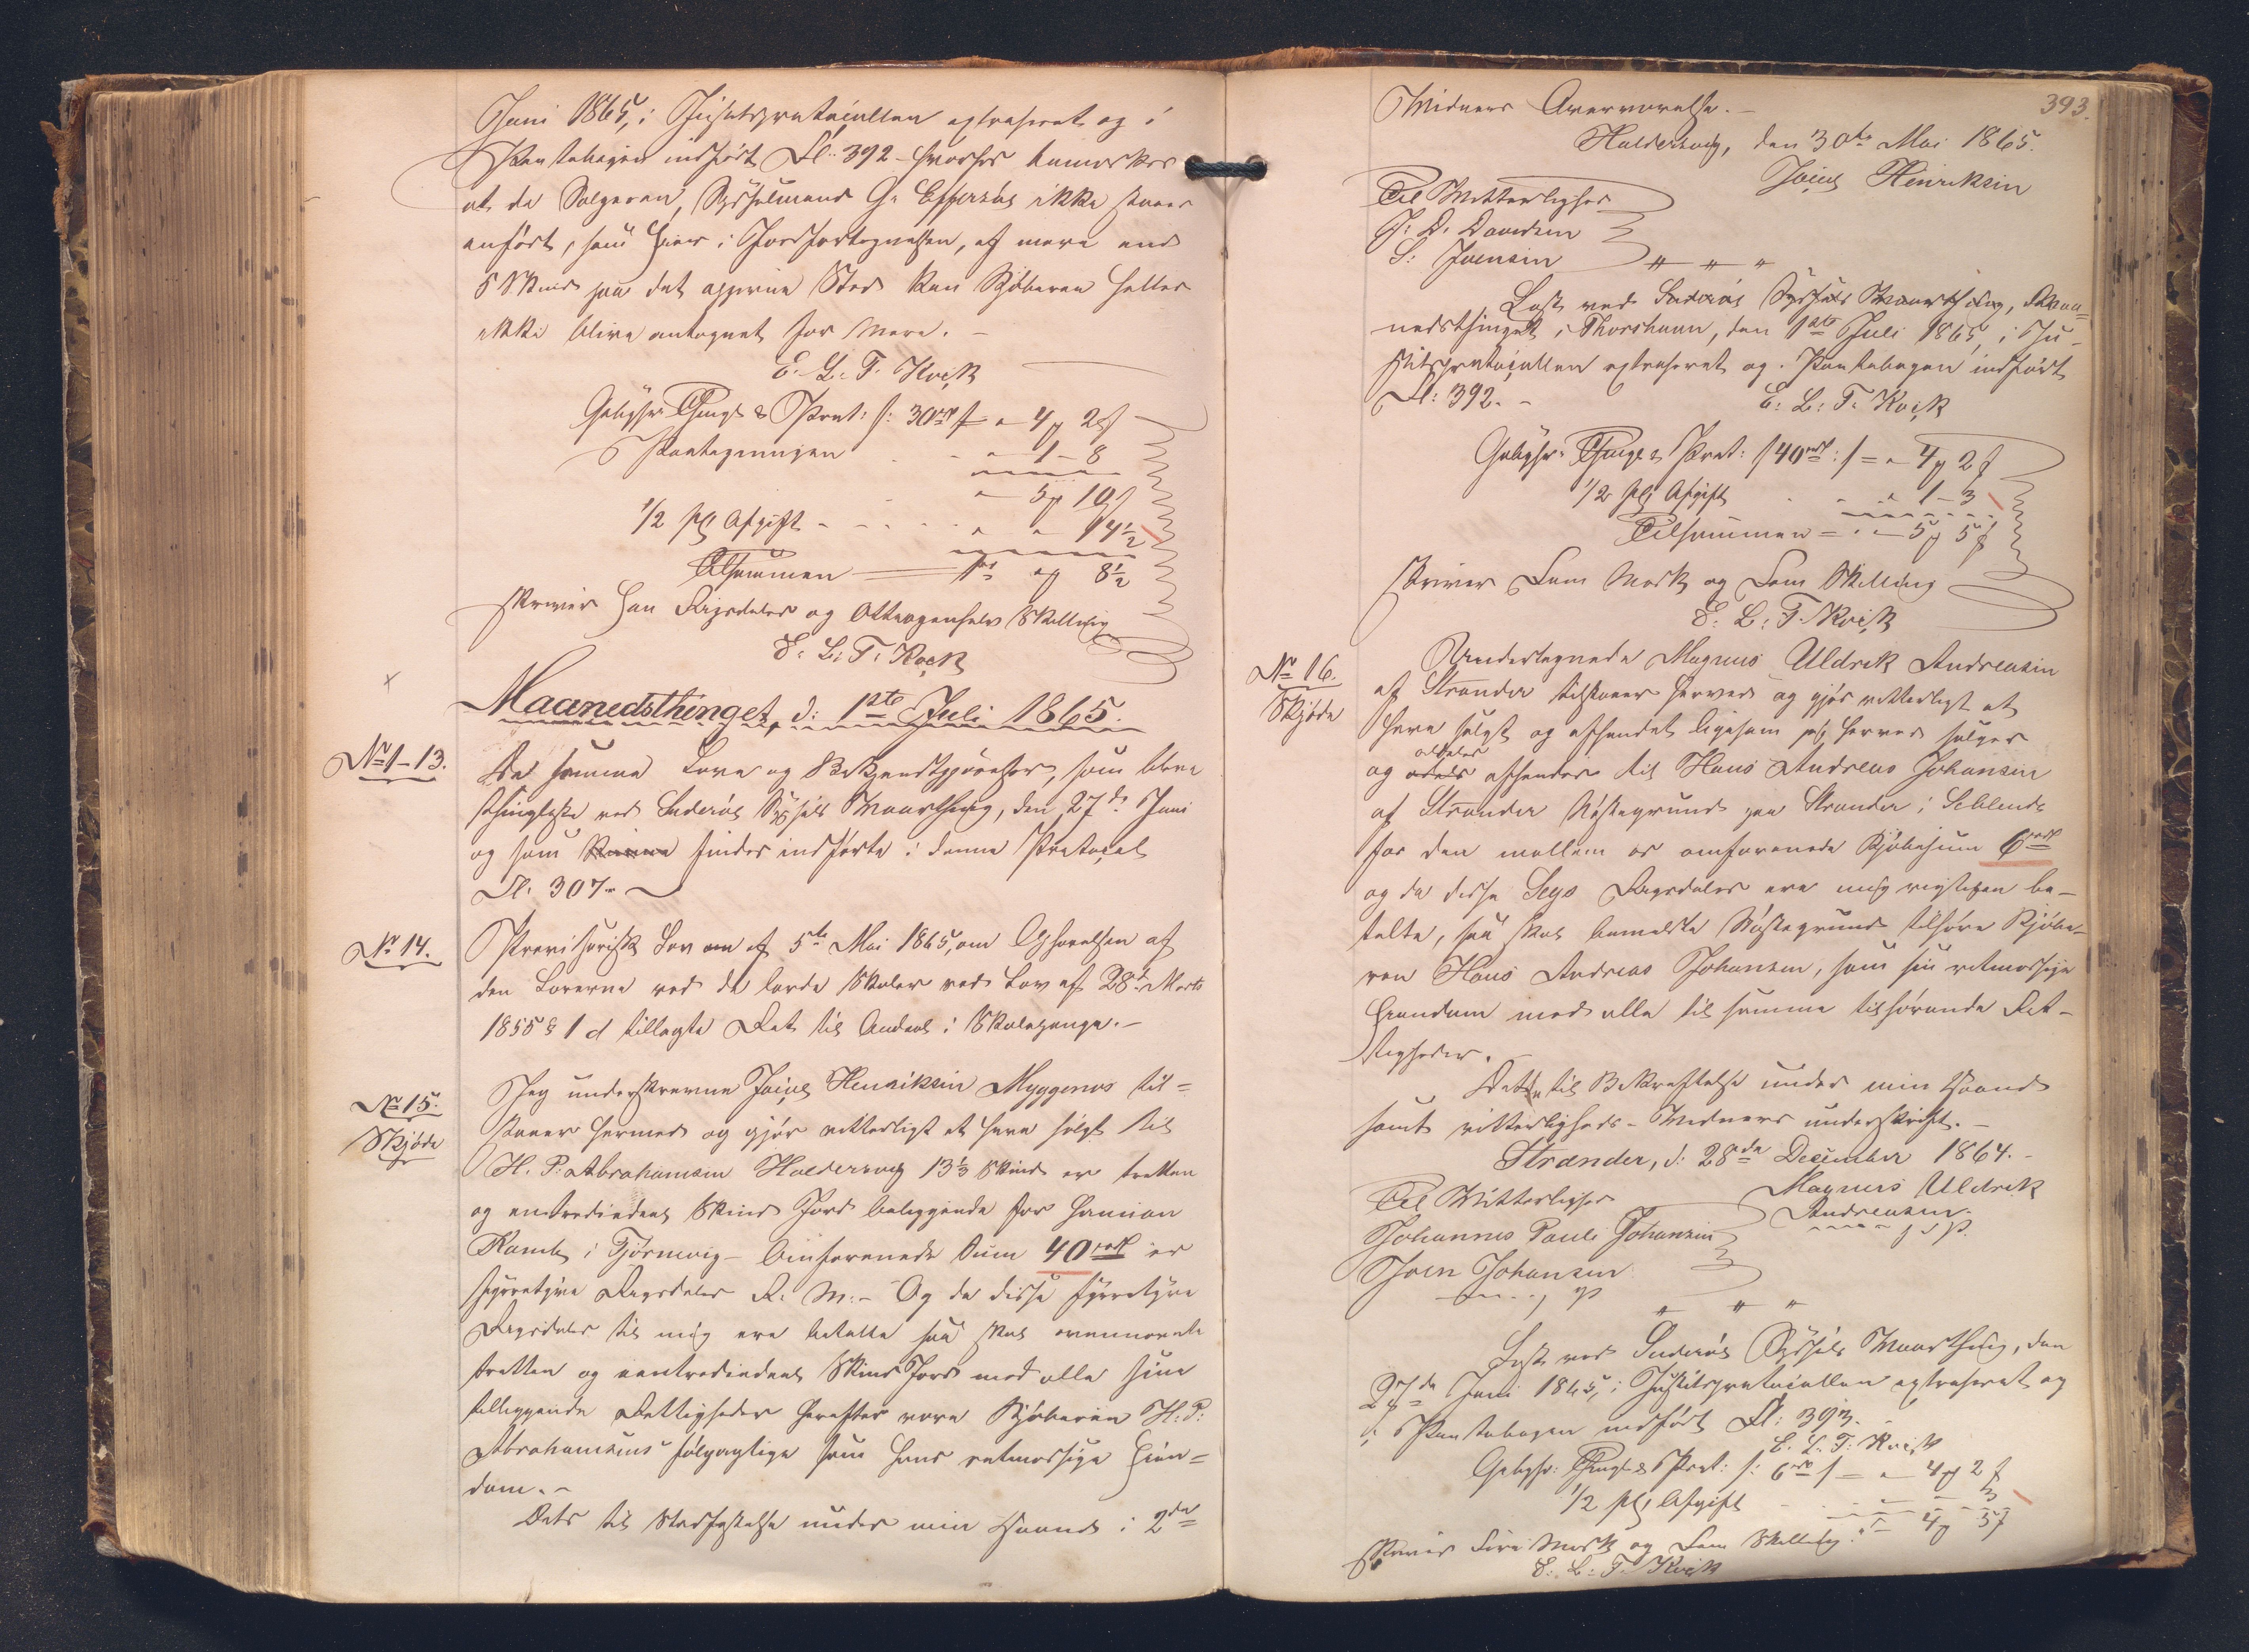 Juni 1865, i Justitsprotocollen extraheret og i
Pantebogen indført Fl. 392 – hvorhos bemærkes
at da Sælgeren, Sysselmand G. Effersøe ikke staaer
anført, som Eier i Jordfortegnelsen, af mere end
5 Skind paa det Sted kan Kjøberen heller
ikke blive antegnet for mere. –
E. L. T. Kock
Gebyhr Thingl & Prot: /: 30 rd /: = " 4 ℳ 2 ß
Paategningen " 1 – 8
" 5 ℳ 10 ß
1/2 pCt Afgift - - - " " 14½
Tilsammen — 1 rd " ℳ 8½
skriver Een Rigsdaler og Otteogenhalv Skilling
E. L. T. Kock
Maanedsthinget, d: 1ste Juli 1865.
No 1–13.
De samme Love og Bekjendtgjørelser, som bleve
thinglæste ved Suderøe Syssels Vaarthing, den 27de Juni
og som findes indførte i denne Protocol
Fl. 307.
No 14.
Provisorisk Lov af 5te Mai 1865, om Ophævelsen af
den Lærerne ved de lærde Skoler ved Lov af 28de Marts
1855 § 1 d tillagte Ret til Andeel i Skolepenge. –
No 15.
Skjøde
Jeg underskrevne Joen Henriksen Myggenæs til=
staaer hermed og gjør vitterligt at have solgt til
H. P. Abrahamsen Haldersvig 13⅓ Skind er tretten
og entrediedeel Skind Jord beliggende
i Tjørnevig – Omforenede Sum 40 rd er
fyrretyve Rigsdaler R. M. – Og da disse fyrretyve
Rigsdaler til mig ere betalte saa skal ovennævnte
tretten og eentrediedeel Skind Jord med alle sine
tilliggende Rettigheder herefter være Kjøberen H: P:
Abrahamsens følgagtige som hans retmæssige Eien=
dom. –
Dets til Stadfæstelse under min Haand i 2de
393.
Vidners Overværelse. –
Haldersvig, den 30te Mai 1865.
Joen Henriksen
Til Vitterlighed
J. D. Davidsen
S: Joensen
" " "
Læst ved Suderøe Syssels Vaarthing, Maa=
nedsthinget i Thorshavn, den 1ste Juli 1865, i Ju-
stitsprotocollen extraheret og i Pantebogen indført
Fl: 392. –
E. L. T. Kock
Gebyhr: Thingl & Prot: /: 40 rd :/ = " 4 ℳ 2 ß
1/2 pCt Afgift - - " 1 – 3
Tilsammen = " – 5 ℳ 5 ß
skriver Fem Mark og Fem Skilling
E. L. T. Kock
No 16.
Skjøde
Undertegnede Magnus Uldrek Andreasen
af Strænder tilstaaer herved og gjør vitterligt at
have solgt og afhændet ligesom jeg herved sælger
aldeles
og afhænder til Hans Andreas Johansen
af Strænder Nøstegrund paa Strænder i Selletræ
for den mellem os omforenede Kjøbesum 6 rd
og da disse Sex Rigsdaler ere mig rigtigen be-
talte, saa skal bemeldte Nøstegrund tilhøre Kjøbe-
ren Hans Andreas Johansen, som sin retmæssige
Eiendom med alle til samme tilhørende Ret-
tigheder. –
Dette til Bekræftelse under min Haand
samt vitterligheds-Vidners underskrift. –
Strænder, d: 28de December 1864. –
Magnus Uldrek
Andreasen
Til Vitterlighed
Johannes Pauli Johansen
Joen Johansen
" " "
Læst ved Suderøe Syssels Vaarthing, den
27de Juni 1865, i Justitsprotocollen extraheret og
i Pantebogen indført Fl: 393.
E. L. T. Kock
Gebyhr: Thingl & Prot: /: 6 rd /: = " 4 ℳ 2 ß
1/2 pCt Afgift - - - 3
" 4 ℳ 5 ß
skriver Fire Mark og Fem Skilling.
E. L. T. Kock